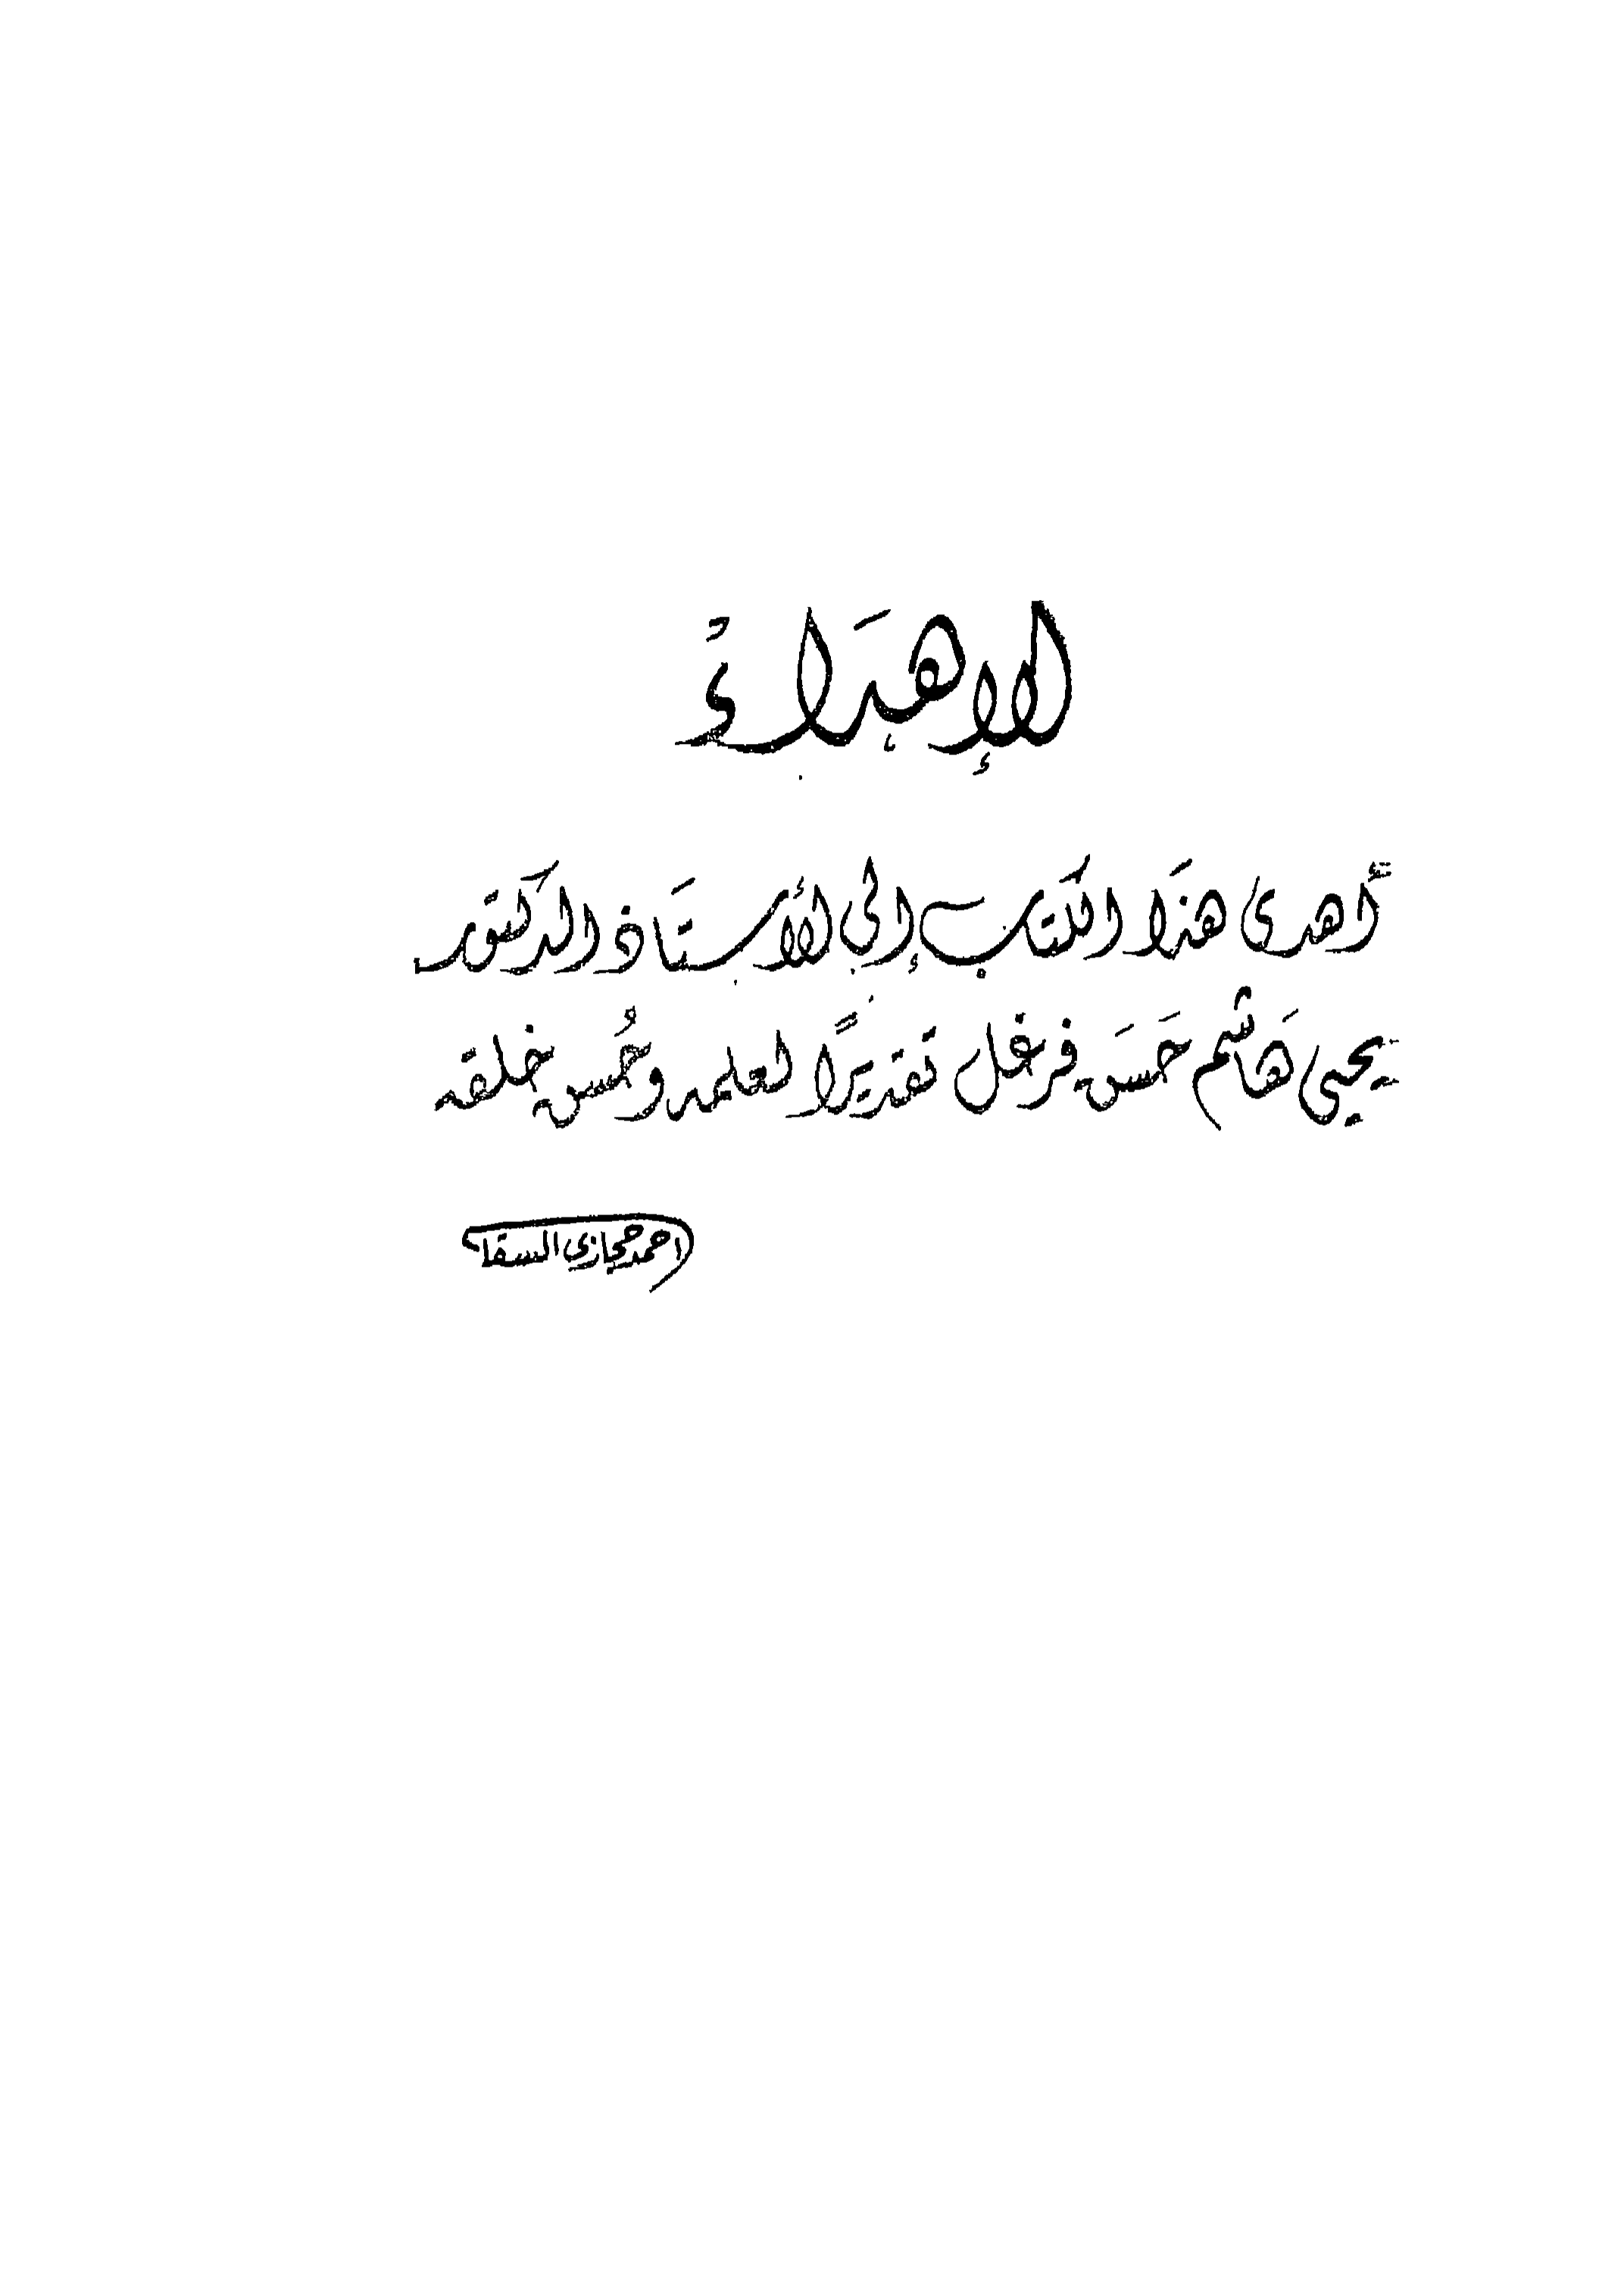 الإهدَاءُ
أهدى هذَا الكتَاب إلى الأستَاذ الدكتور
يحيى هَاشم حَسَن فرغل تقديرًا لعلمه وحُسن خلقه
احمد حجازى السقا